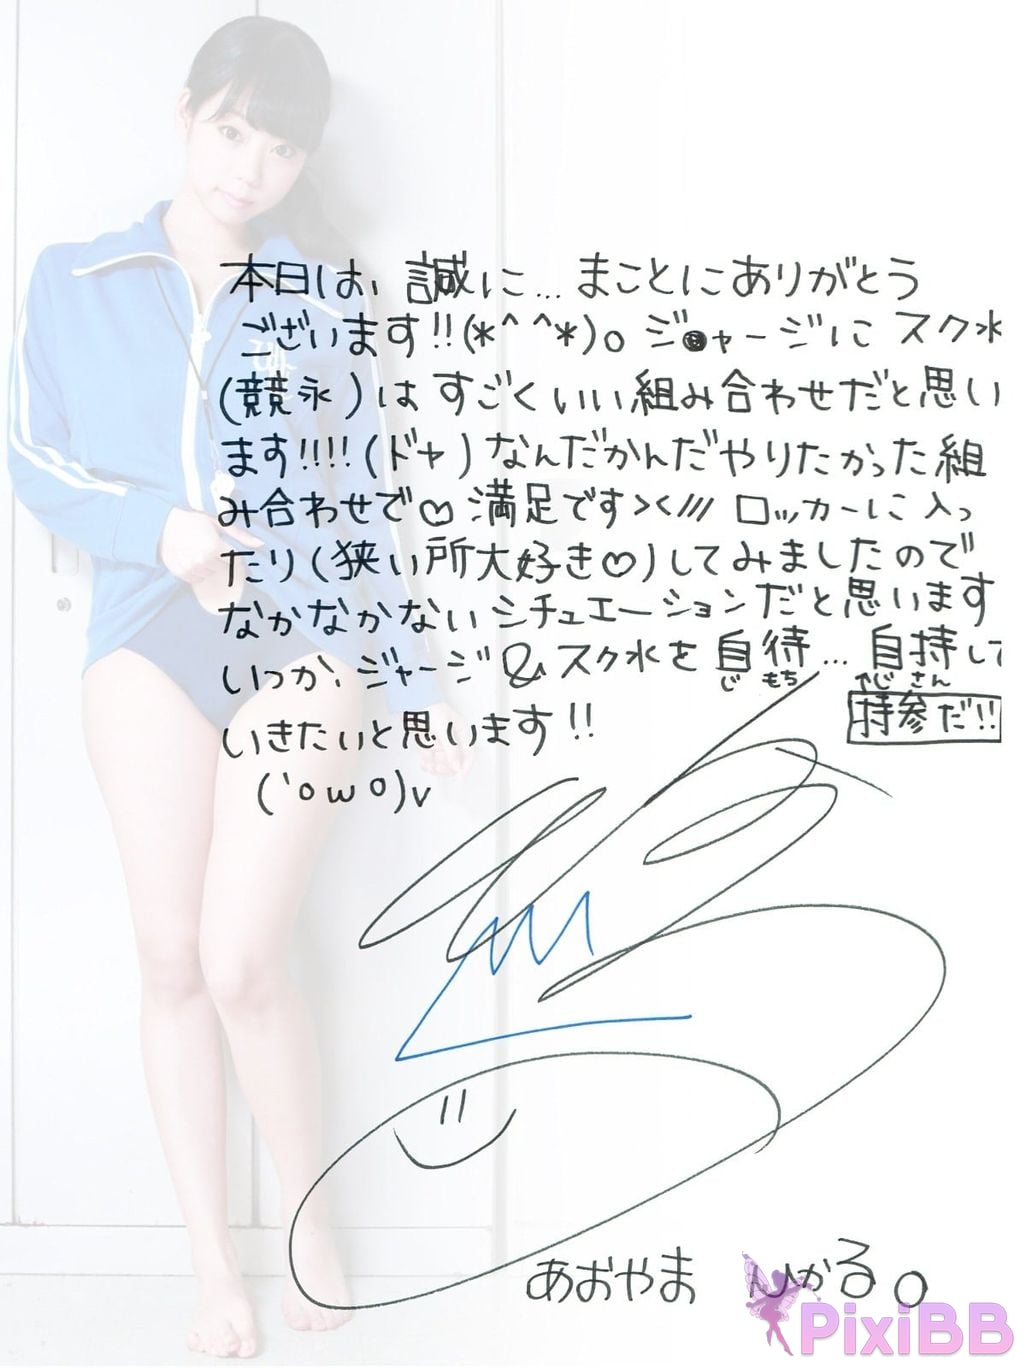 本日は、誠に…まことにありがとう
ございます!!(*^ ^*)。ジャージにスク水
(競泳)はすごくいい組み合わせだと思い
ます!!!!(ドヤ)なんだかんだやりたかった組
み合わせで♡満足です></// ロッカーに入っ
たり(狭い所大好き♡)してみましたので
なかなかないシチュエーションだと思います
いつか、ジャージ&スク水を自待…自持して
じ もち
↑じ さん
持参だ!!
いきたいと思います!!
(‘oωo)v
あおやま ひかる。
PixiBB